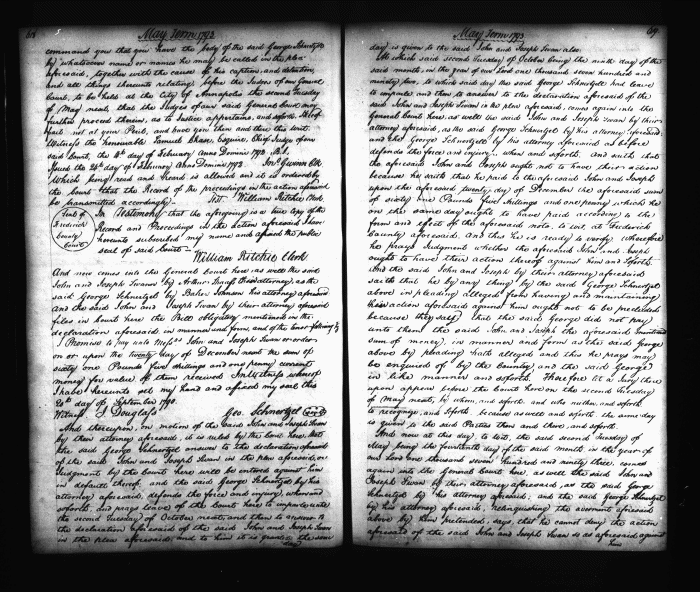 May Term 1793
command you that you have the body of the said George Schnertzel
by whatsoever name or names he may be called in the plea
aforesaid, together with the cause of his caption and detention,
and all things thereunto relating before the Judges of our General
Court, to be held at the City of Annapolis the second Tuesday
of May next, that the Judges of our said General Court may
further proceed therein, as to Justice appertains, and soforth. Hereof
fail not at your Peril, and have you then and there this writ.
Witness the honourable Samuel Chase, Esquire, Chief Judge of our
said Court, the 8th day of February Anno Domini 1792
Issued the 24th day of February Anno Domini 1792. Jno Gwinn Clk
Which being read and heard is allowed and it is ordered by
the Court that the Record of the proceedings in the action aforesaid
be transmitted accordingly. Test. William Ritchie Clerk
Seal of
Frederick
County
Court
In Testimony that the aforegoing is a true copy of the
Record and Proceedings in the action aforesaid I have
hereunto subscribed my name and affixed the public
seal of said Court
William Ritchie Clerk
And now comes into the General Court here as well the said
John and Joseph Swan by Arthur Shaaff their attorney, as the
said George Schnertzel by Baker Johnson his attorney aforesaid
And the said John and Joseph Swan by their attorney aforesaid
files in Court here the Bill obligatory mentioned in the
declaration aforesaid in manner and form, and of the tenor following
I Promise to pay unto Messrs John and Joseph Swan or order
on or upon the twenty day of December next the sum of
sixty one Pounds five shillings and one penny current
money for value of them received. In witness whereof
I have hereunto set my hand and affixed my seal this
day of September 1790.
Witness S Douglass Geo. Schnertzel Seal
And thereupon, on motion of the said John and Joseph Swan
by their attorney aforesaid, it is ruled by the Court here, that
the said George Schnertzel answer to the declaration aforesaid
of the said John and Joseph Swan in the plea aforesaid, or
Judgment by the Court here will be entered against him
in default thereof and the said George Schnertzel by his
attorney aforesaid, defends the force and injury, when and
soforth, and prays leave of the Court here to imparle until
the second Tuesday of October next, and then to answer to
the declaration aforesaid of the said John and Joseph Swan
in the plea aforesaid, and to him it is granted the same
May Term 1793
69
day is given to the said John and Joseph Swan also.
At which said second Tuesday of October being the ninth day of the
said month, in the year of our Lord one thousand seven hundred and
ninety two, to which said day the said George Schnertzel had leave
to imparle and then to answer to the declaration aforesaid of the
said John and Joseph Swan in the plea aforesaid, comes again into the
General Court here, as well the said John and Joseph Swan by their
attorney aforesaid, as the said George Schnertzel by his attorney aforesaid
and the George Schnertzel by his attorney aforesaid as before
defends the force and injury, when and soforth, and saith that
the aforesaid John and Joseph ought not to have their action
because he saith that he paid to the aforesaid John and Joseph
upon the aforesaid twenty day of December the aforesaid sum
of sixty one Pounds five shillings and one penny which he
on the same day ought to have paid according to the
form and effect of the aforesaid note, to wit, at Frederick
County aforesaid. And this he is ready to verify, wherefore
he prays Judgment whether the aforesaid John and Joseph
ought to have their action thereof against him and soforth.
And the said John and Joseph by their attorney aforesaid
saith that he by any thing by the said George Schnertzel
above in pleading alleged from having and maintaining
their action aforesaid against him ought not to be precluded
because they says that the said George did not pay
unto them the said John and Joseph the aforesaid mentioned
sum of money, in manner and form as the said George
above by pleading hath alleged and this he prays may
be enquired of by the County, and the said George
in like manner and soforth. Therefore let a Jury there
upon appear before the Court here on the second Tuesday
of May next, by whom, and soforth, and who neither, and soforth
to recognize, and soforth, because as well and soforth the same day
is given to the said Parties then and there, and soforth.
And now at this day, to wit, the said second Tuesday of
May being the fourteenth day of the said month in the year of
our Lord one thousand seven hundred and ninety three, comes
again into the General Court here, as well the said John and
Joseph Swan by their attorney aforesaid, as the said George
Schnertzel by his attorney aforesaid; and the said George Schnertzel
by his attorney aforesaid, relinquishing the averment aforesaid
above by him pretended, says, that he cannot deny the action
aforesaid of the said John and Joseph Swan so as aforesaid against